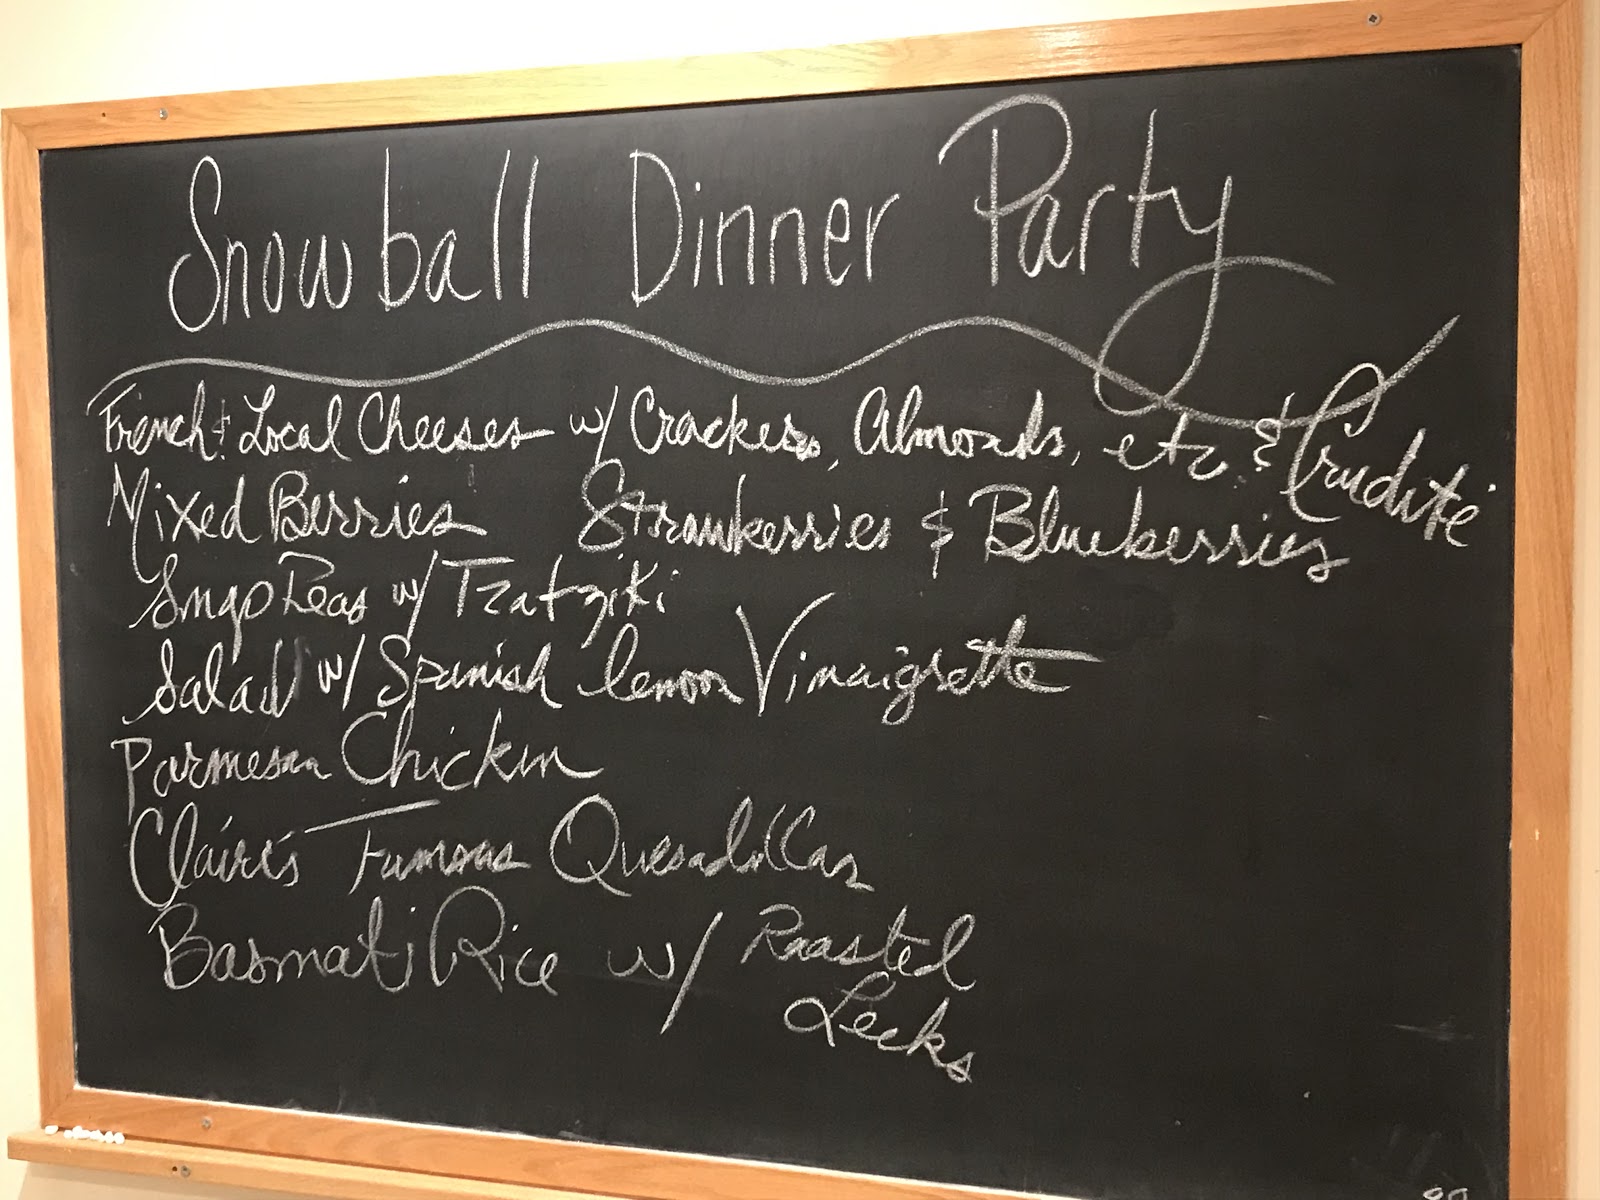 Snowball Dinner Party
French & Local Cheeses w/ Crackers, Almonds, etc & Crudité
Mixed Berries Strawberries & Blueberries
Snap Peas w/ Tzatziki
Salad w/ Spanish lemon Vinaigrette
Parmesan Chicken
Claire's Famous Quesadillas
Basmati Rice w/ Roasted
Leeks